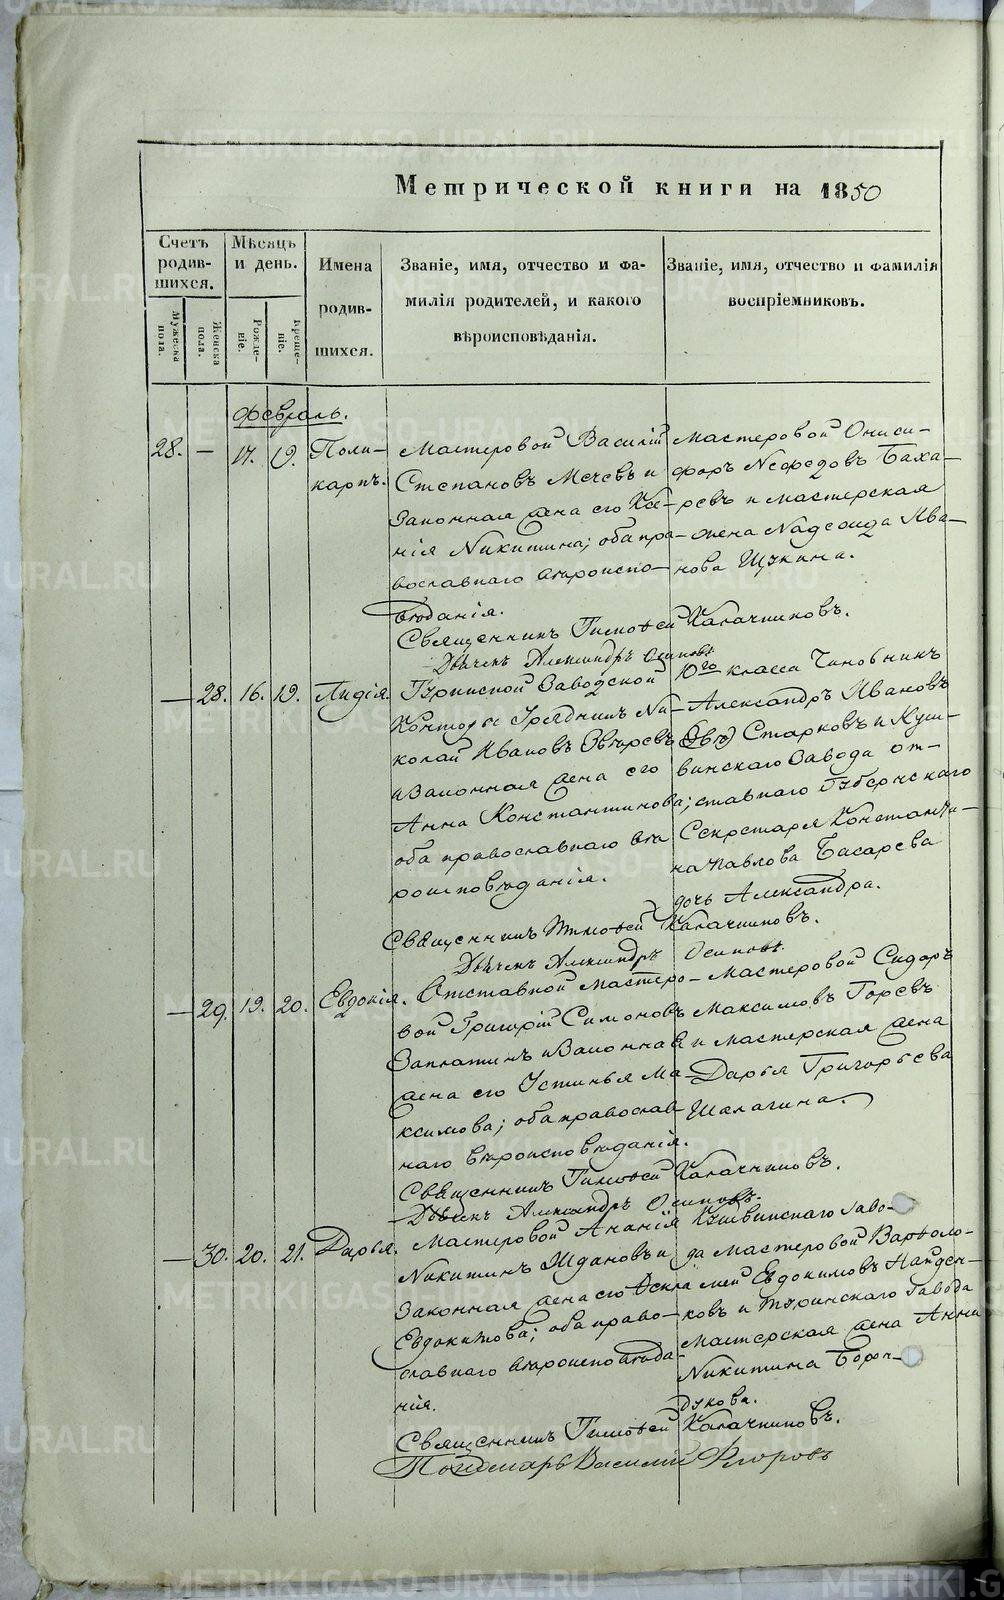 Метрической книги на 1850
Счетъ родив-шихся.
Мужеска пола.
Женска пола.
Мѣсяцъ и день.
Рожде-ніе.
Креще-ніе.
Имена родив-шихся.
Званіе, имя, отчество и фа-
милія родителей, и какого
вѣроисповѣданія.
Званіе, имя, отчество и фамилія
воспріемниковъ.
Февраль.
28. — 17. 19. Поли-
карпъ.
Мастеровой Василій
Степановъ Мечевъ и
законная жена его Ксе-
нія Никитина; оба пра-
вославнаго вѣроиспо-
вѣданія.
Мастеровой Ониси-
форъ Неѳедовъ Баха-
ревъ и мастерская
жена Надежда Ива-
нова Щукина.
Священникъ Тимоѳей Калачниковъ.
Дьячекъ Александръ Осиповъ
— 28. 16. 19. Лидія.
Туринской Заводской
Конторы Урядникъ Ни-
колай Ивановъ Звѣревъ
и Законная жена его
Анна Константинова;
оба православнаго вѣ
роисповѣданія.
10го класса Чиновникъ
Александръ Ивановъ
Старковъ и Куш-
винскаго Завода от-
ставнаго Губернскаго
Секретаря Константи-
на Павлова Басарева
дочь Александра.
Священникъ Тимоѳей Калачниковъ.
Дьячекъ Александръ Осиповъ.
— 29. 19. 20. Евдокія.
Отставной мастеро-
вой Григорій Симоновъ
Заплатинъ и Законная
жена его Устинья Ма-
ксимова; оба православ
наго вѣроисповѣданія.
Мастеровой Сидоръ
Максимовъ Горевъ
и мастерская жена
Дарья Григорьева
Шалагина.
Священникъ Тимоѳей Калачниковъ.
Дьячекъ Александръ Осиповъ.
— 30. 20. 21. Дарья.
Мастеровой Ананія
Никитинъ Ждановъ и
Законная жена его Ѳекла
Евдокимова; оба право-
славнаго вѣроисповѣда-
нія.
Кушвинскаго Заво-
да Мастеровой Варѳоло-
мей Евдокимовъ Найден-
ковъ и Туринскаго завода
мастерская жена Анна
Никитина Бород-
дукова.
Священникъ Тимоѳей Калачниковъ.
Пономарь Василій Флоровъ
METRIKI.GASO-URAL.RU